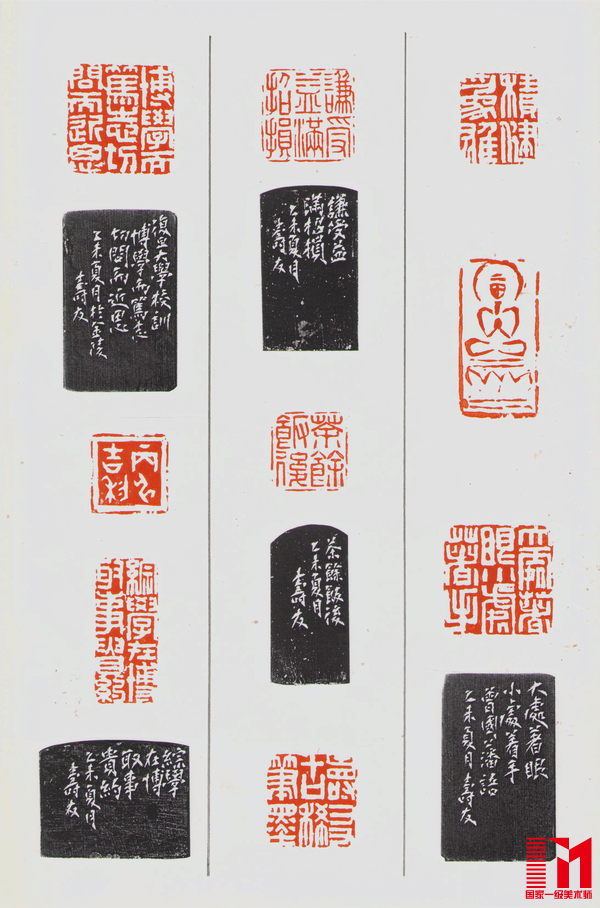 積健
為雄
大處著
眼小處
著手
大處著眼
小處着手
曾國藩語
乙未夏月 壽友
謙受
益滿
招損
謙受益
滿招損
乙未夏月
壽友
茶餘
飯後
茶餘飯後
乙未夏月
壽友
壽友
古稀
筆墨
博學而
篤志切
問而近思
復旦大學校訓
博學而篤志
切問而近思
乙未夏月於金陵
壽友
吉利
綜學在博
取事貴約
綜學
在博
取事
貴約
乙未夏月
壽友
国家一级美术师